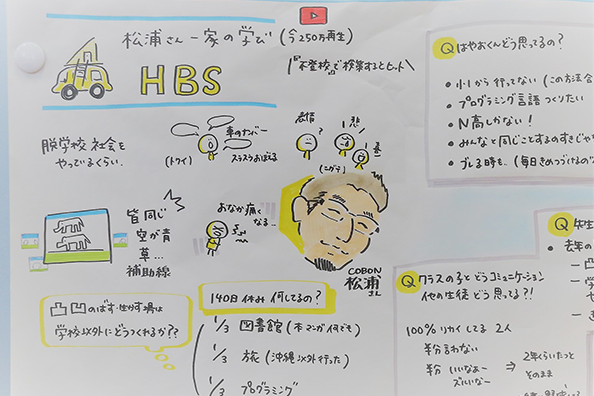 松浦さん一家の学び (今250万再生)
"不登校"で検索するとヒット
HBS
脱学校社会を
やってるくらい.
車のナンバー
(トクイ)
スラスラおぼえる
表情
?
(ニガテ)
悲
!
喜
皆同じ
空が青
草...
補助線
おなか痛く
なる...
COBON
松浦
さん
凸凹のばす・せかす場は
学校以外にどうつくれるか??
140日休み 何してるの?
1/3 図書館 (本マンガ何でも)
1/3 旅 (沖縄以外行った)
1/3 プログラミング
Q はやおくんどう思ってるの?
• 小1から行ってない (この方法
• プログラミング言語つくりたい
• N高しかない!
• みんなと同じことするのすきじゃ
• ブレる時も.. (毎日きめつづけるの
Q 先生
• 去年の
Q クラスの子とどうコミュニケーション
他の生徒どう思ってる?!
100% リカイしてる 2人
半分 言わない
半分 いいなぁー
ズルいなー
⇒ 2年くらいたっ
そのまま